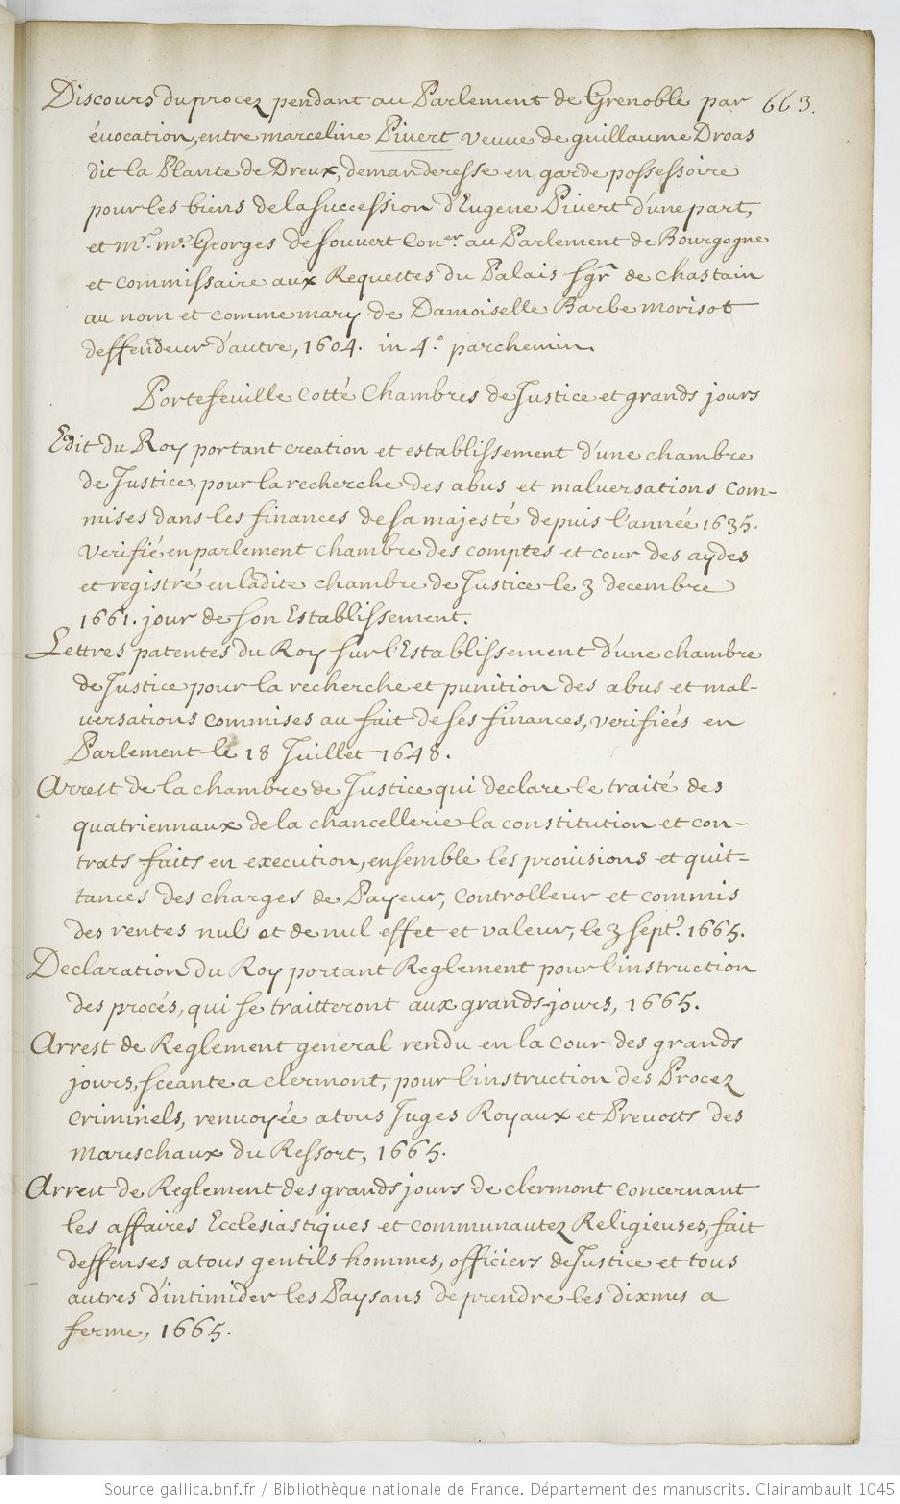 Discours du procez pendant au Parlement de Grenoble par 663.
évocation, entre marceline Pivert veuve de guillaume Droas
dit la Plante de Dreux, demanderesse en garde possessoire
pour les biens de la succession d'Eugene Pivert d'une part,
et Mr. me. Georges de Souvert Coner. au Parlement de Bourgogne
et commissaire aux Requestes du Palais sgr de Chastain
au nom et comme mary de Damoiselle Barbe morisot
deffendeur d'autre, 1604. in 4.° parchemin.
Portefeuille cotté Chambres de Justice et grands jours
Edit du Roy portant creation et establissement d'une chambre
de Justice, pour la recherche des abus et malversations com-
mises dans les finances de sa majesté depuis l'année 1635.
verifié en parlement chambre des comptes et cour des aydes
et registré en ladite chambre de Justice le 3 decembre
1661. jour de son Establissement.
Lettres patentes du Roy sur l'Establissement d'une chambre
de Justice pour la recherche et punition des abus et mal-
versations commises au fait de ses finances, verifiées en
Parlement le 18 Juillet 1648.
Arrest de la chambre de Justice qui declare le traité des
quatriennaux de la chancellerie la constitution et con-
trats faits en execution, ensemble les provisions et quit=
tances des charges de Payeur, Controlleur et commis
des rentes nuls et de nul effet et valeur, le 3 sept. 1665.
Declaration du Roy portant Reglement pour l'instruction
des procés, qui se traitteront aux grands-jours, 1665.
Arrest de Reglement general rendu en la cour des grands
jours, sceante a clermont, pour l'instruction des Procez
criminels, renvoyée a tous Juges Royaux et Prevosts des
Mareschaux du Ressort, 1665.
Arrest de Reglement des grands jours de clermont concernant
les affaires Ecclesiastiques et communautez Religieuses, fait
deffenses a tous gentils hommes, officiers de Justice et tous
autres d'intimider les Paysans de prendre les dixmes a
ferme, 1665.
Source gallica.bnf.fr / Bibliothèque nationale de France. Département des manuscrits. Clairambault 1045